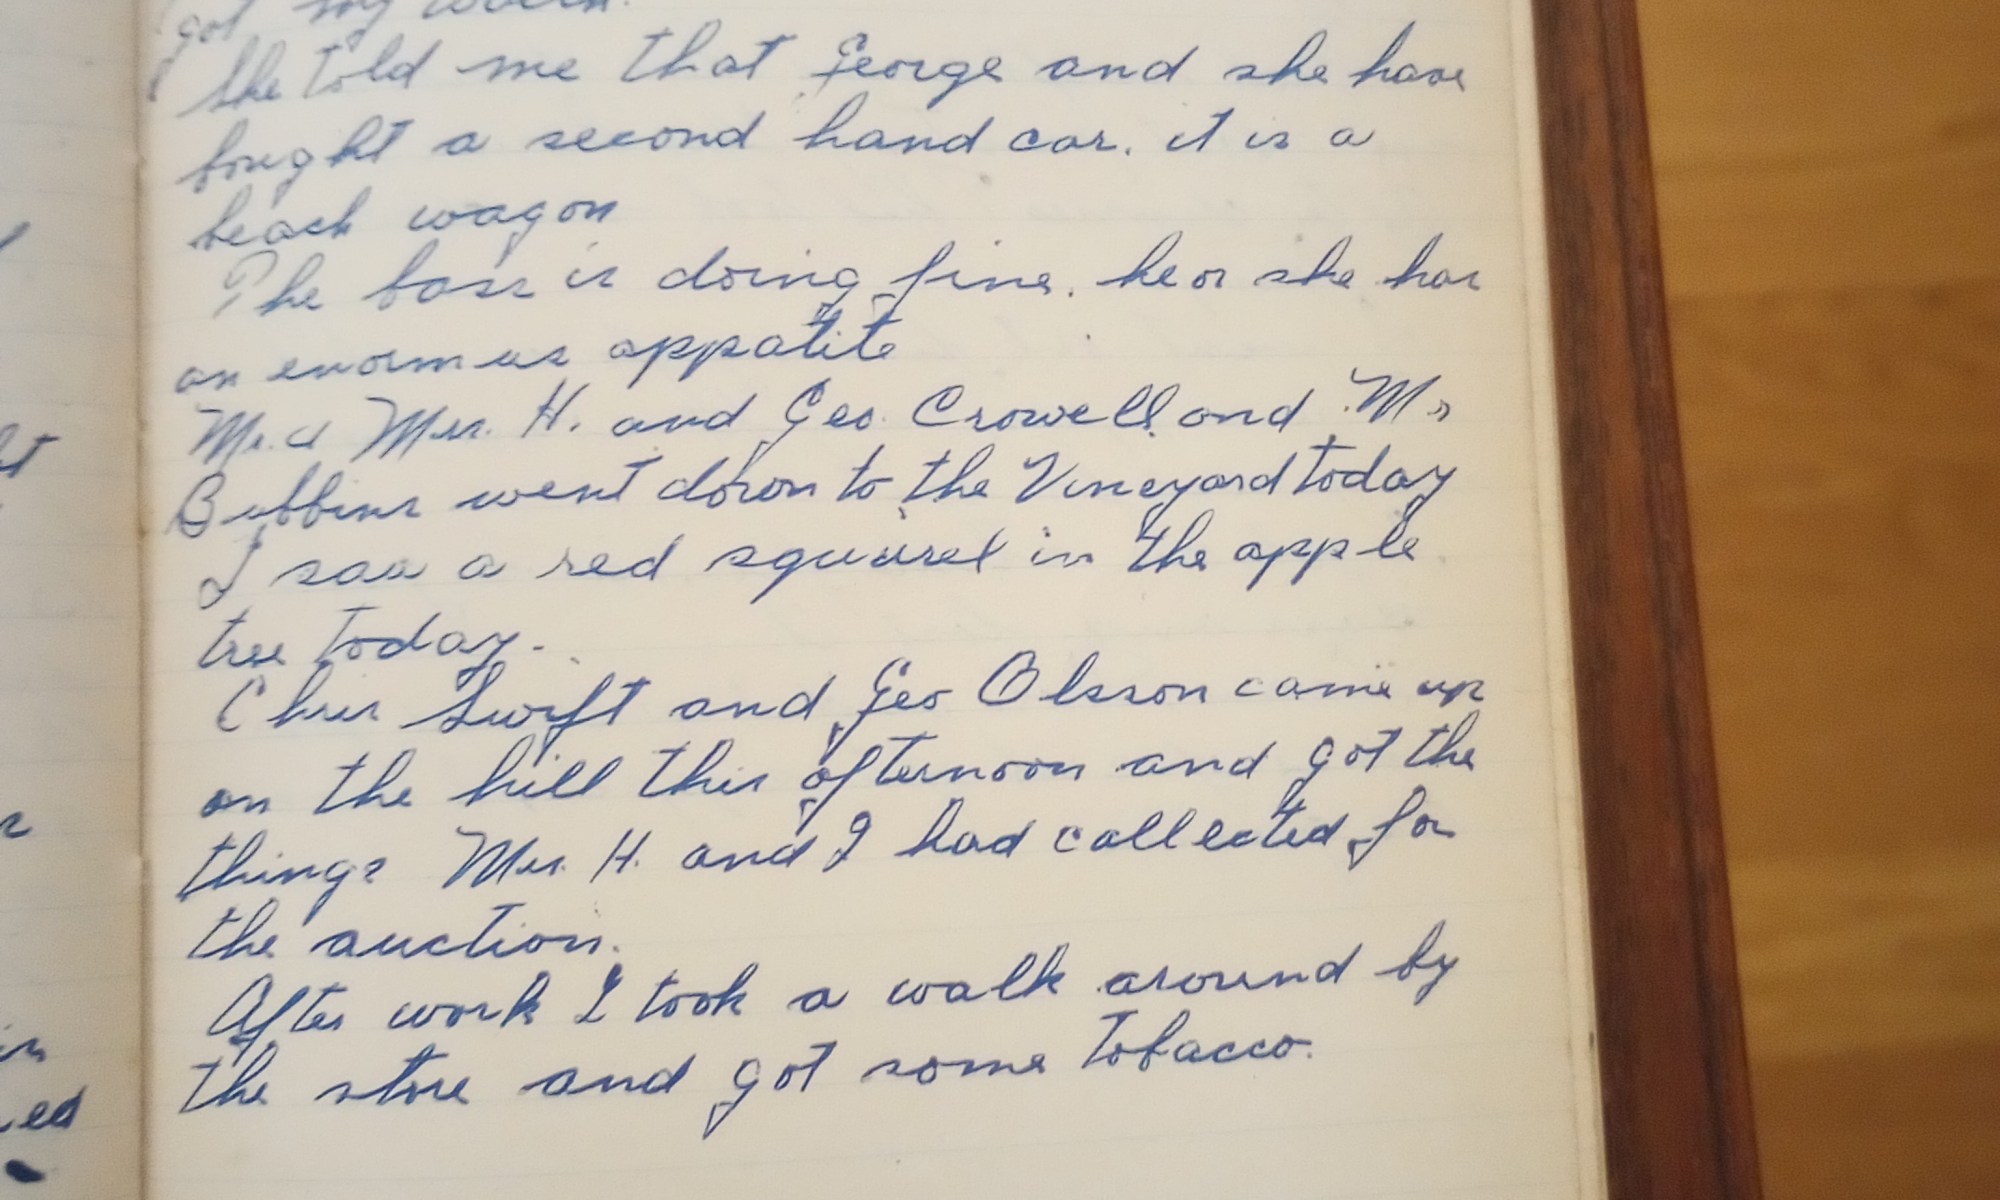 got my
She told me that George and she have
bought a second hand car. it is a
beach wagon
The bass is doing fine. he or she has
an enormus appatite
Mr. & Mrs. H. and Geo. Crowell and Mr
went down to the Vineyard today
I saw a red squirrel in the apple
tree today.
Chris Swift and Geo Olsson came up
on the hill this afternoon and got the
things Mrs. H. and I had collected for
the auction.
After work I took a walk around by
the store and got some tobacco.